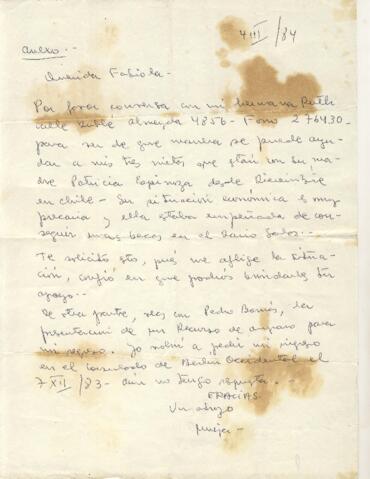 4 III / 84
Anexo.-
Querida Fabiola-
Por favor conversa con mi hermana Ruth
calle Dublé Almeyda 4856- Fono 2 76430-
para ver de que manera se puede ayu-
dar a mis tres nietos que están con su ma-
dre Patricia Espinoza desde Diciembre
en Chile- Su situación económica es muy
precaria y ella estaba empeñada de con-
seguir unas becas en el
Te solicito esto, pués me aflige la situa-
ción, confío en que podrás brindarles tu
apoyo.-
De otra parte, veas con Pedro Barría, la
presentación de un Recurso de amparo para
mi regreso. Yo volví a pedir mi ingreso
en el consulado de Berlín Occidental el
7 XII / 83- aún no tengo respuesta.-
GRACIAS.
Un abrazo